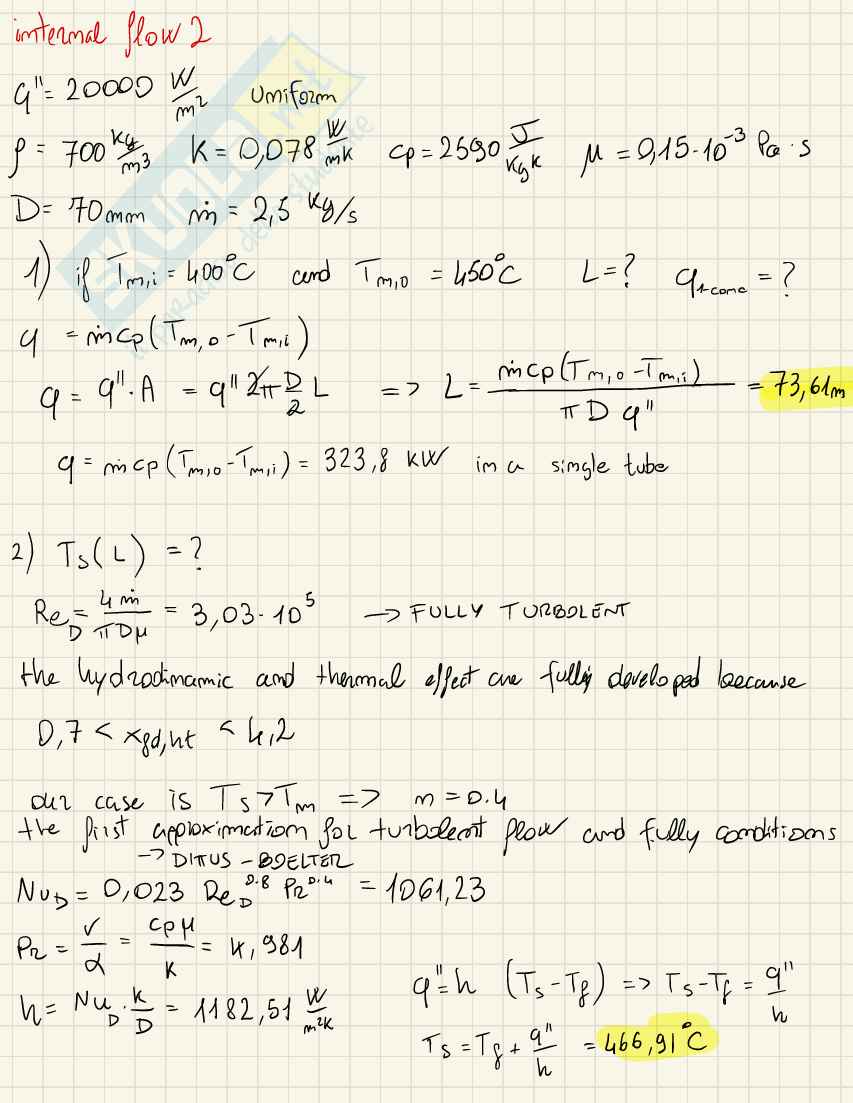 internal flow 2
q'' = 20000 W/m² Uniform
ρ = 700 kg/m³ K = 0,078 W/mK cp = 2590 J/kgK μ = 0,15·10⁻³ Pa·s
D = 70mm ṁ = 2,5 Kg/s
1) if Tm,i = 400°C and Tm,o = 450°C L=? q1-conc = ?
q = ṁcp(Tm,o - Tm,i)
q = q''·A = q'' 2π D/2 L => L = ṁcp(Tm,o - Tm,i) / πD q'' = 73,61m
q = ṁcp(Tm,o - Tm,i) = 323,8 KW in a single tube
2) Ts(L) = ?
ReD = 4ṁ/πDμ = 3,03·10⁵ → FULLY TURBOLENT
the hydrodinamic and thermal effect are fully developed because
0,7 < xfd,ht < 4,2
our case is Ts>Tm => n=0.4
the first approximation for turbolent flow and fully conditions
→ DITUS-BOELTER
NuD = 0,023 ReD^0.8 Pr^0.4 = 1061,23
Pr = ν/α = cpμ/K = 4,981
h = NuD · k/D = 1182,51 W/m²K
q'' = h (Ts-Tf) => Ts-Tf = q''/h
Ts = Tf + q''/h = 466,91°C